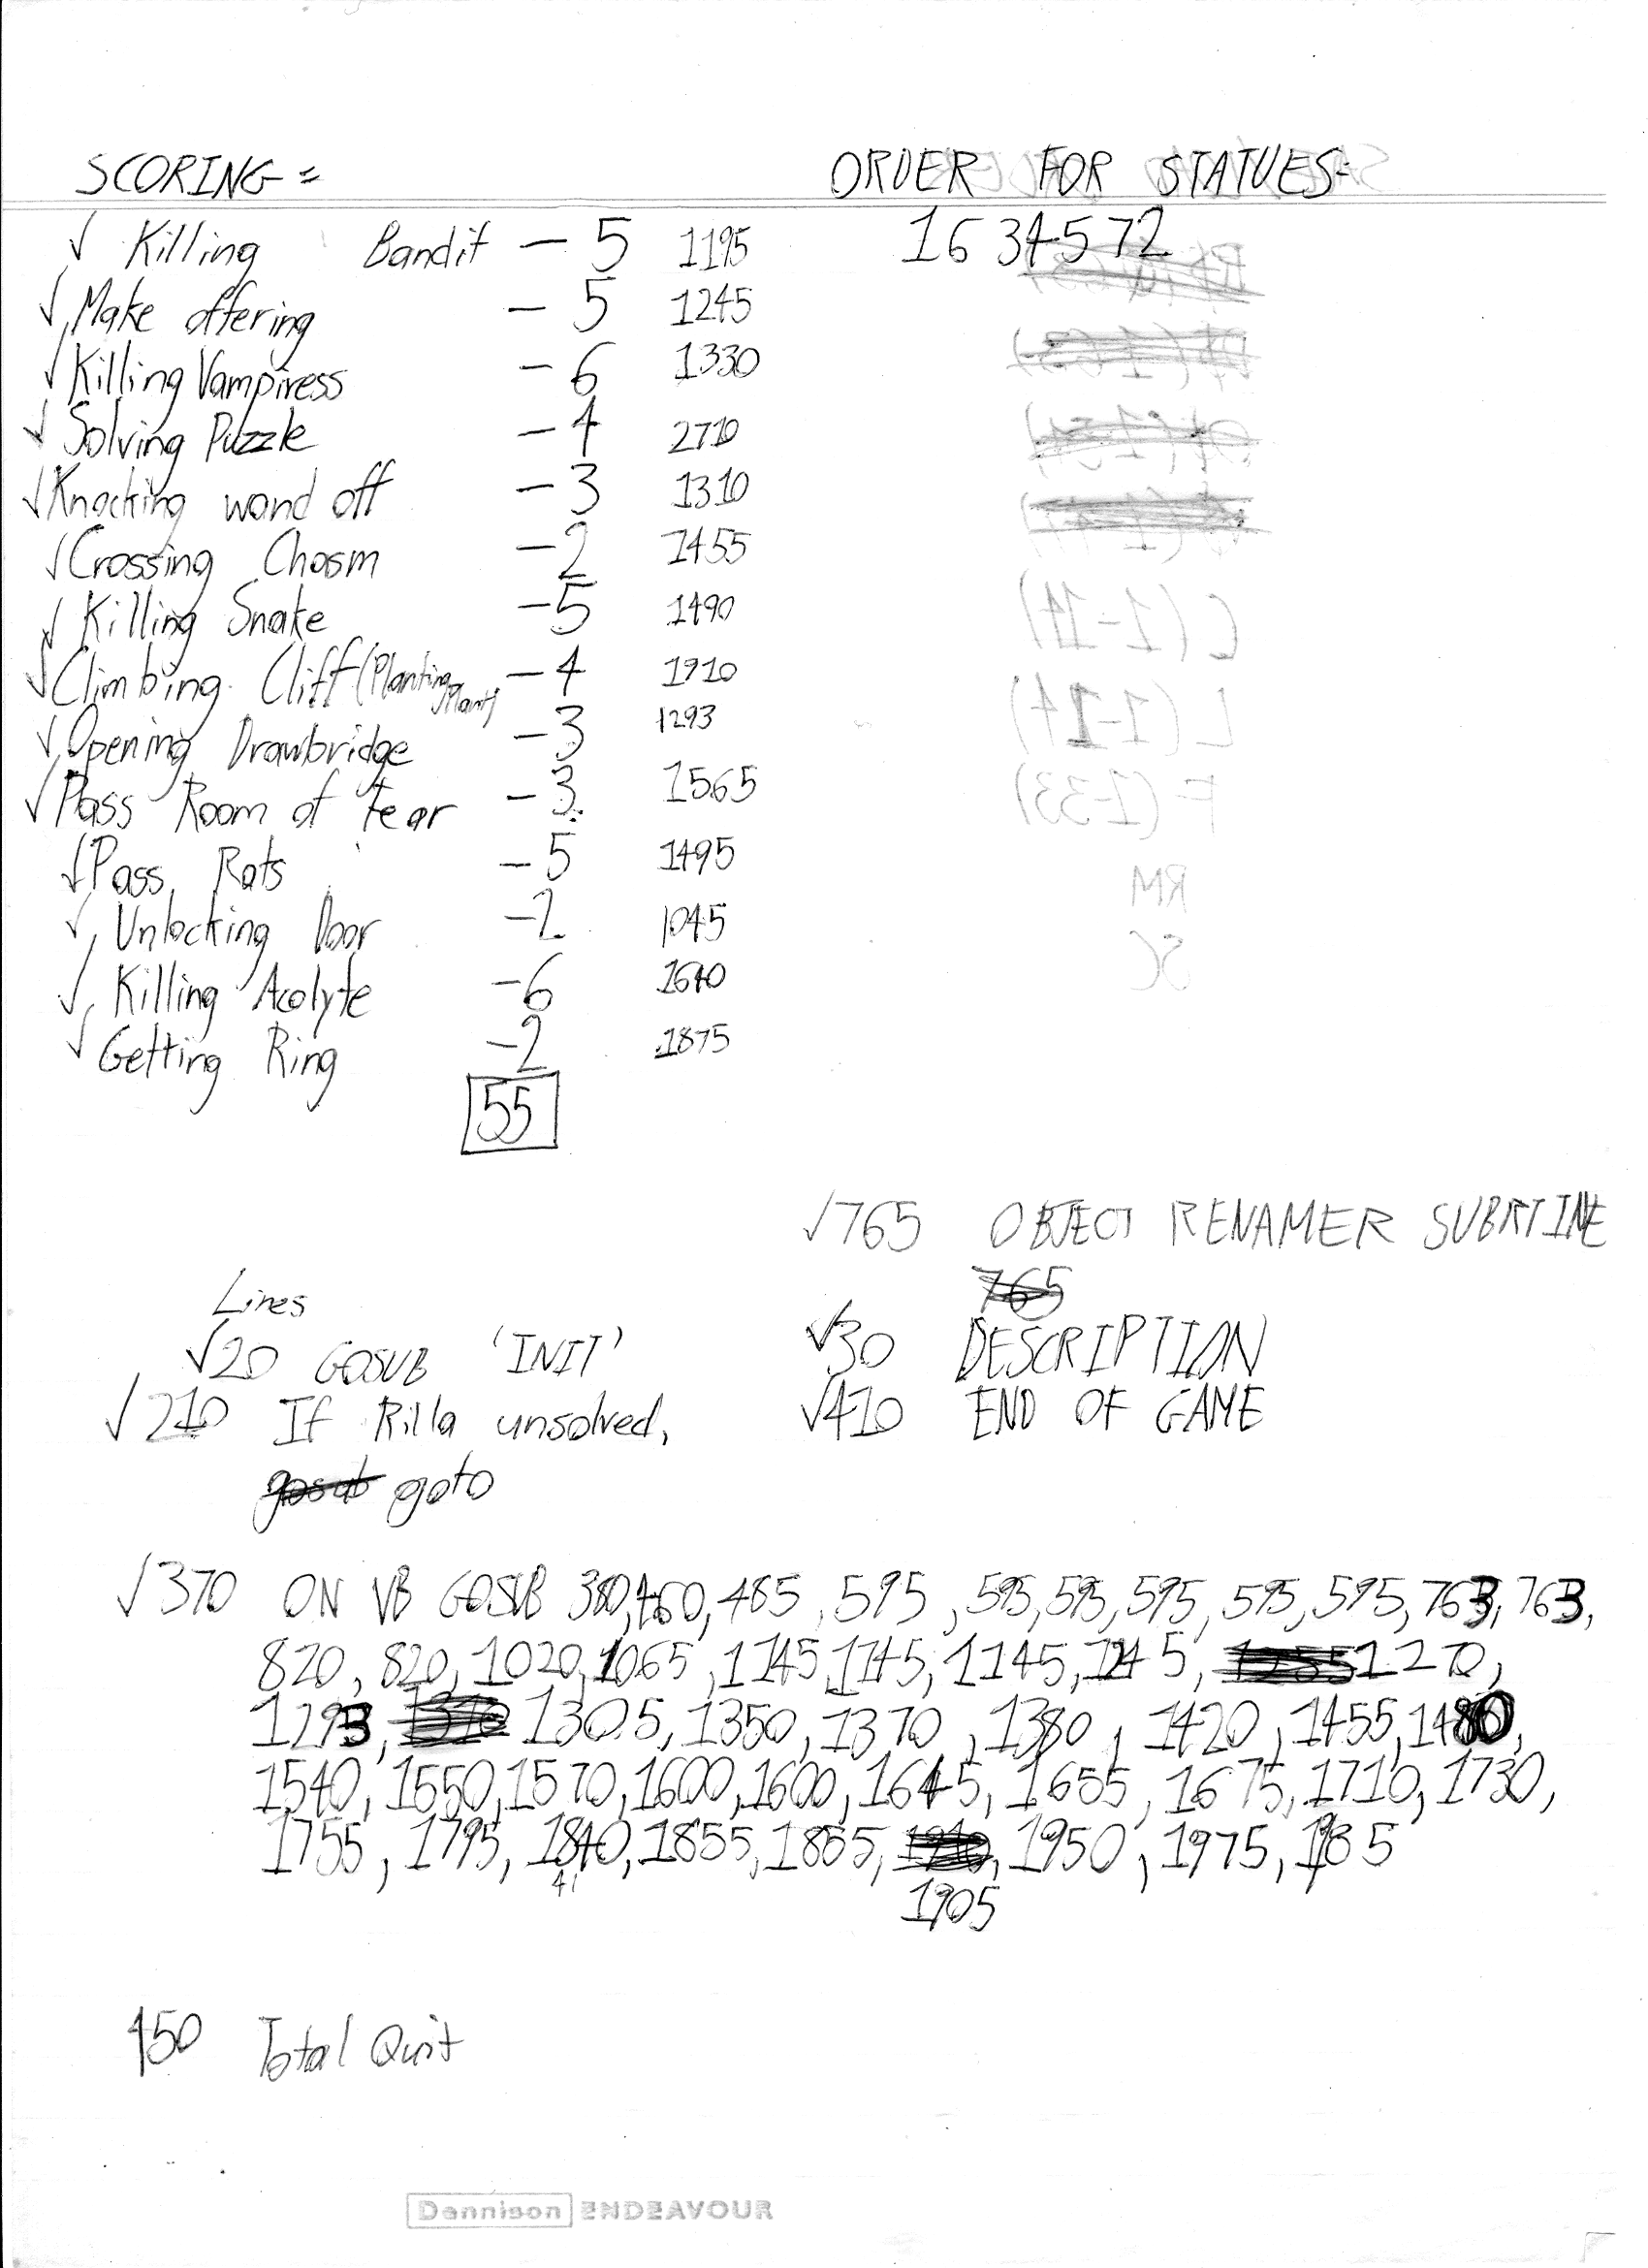 SCORING =
ORDER FOR STATUES:-
1634572
√ Killing Bandit - 5 1195
√ Make offering - 5 1245
√ Killing Vampiress - 6 1330
√ Solving Puzzle - 4 2710
√ Knocking wand off - 3 1310
√ Crossing Chasm - 2 1455
√ Killing Snake - 5 1490
√ Climbing Cliff (Planting Plant) - 4 1910
√ Opening Drawbridge - 3 1293
√ Pass Room of fear - 3 1565
√ Pass Rats - 5 1495
√ Unlocking Door - 2 1045
√ Killing Acolyte - 6 1640
√ Getting Ring - 2 1875
55
√765 OBJECT RENAMER SUBRTINE
765
Lines
√20 GOSUB 'INIT'
√30 DESCRIPTION
√210 If Rilla unsolved,
gosub goto
√410 END OF GAME
√370 ON VB GOSUB 380,460,485,595,595,595,595,595,595,763,763,
820,820,1020,1065,1145,1145,1145,1145,1270,
1293,1305,1350,1370,1380,1420,1455,1480,
1540,1550,1570,1600,1600,1645,1655,1675,1710,1730,
1755,1795,1840,1855,1865,1950,1975,1985
41
1905
450 Total Quit
Dennison ENDEAVOUR